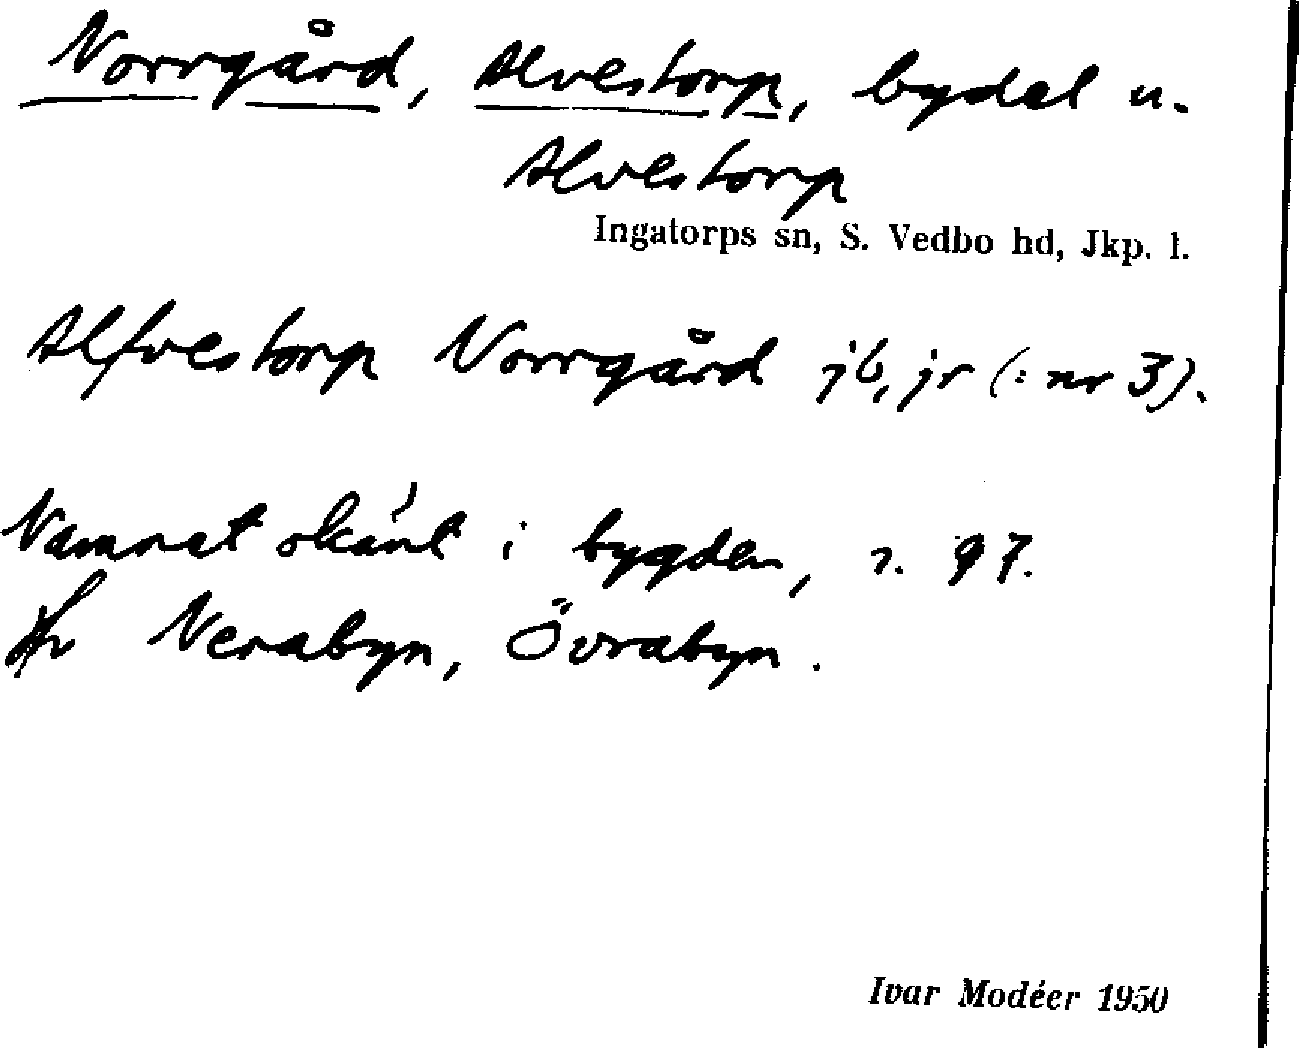 Norrgård, Alvestorp, bydel u.
Alvestorp
Ingatorps sn, S. Vedbo hd, Jkp. l.
Alfvestorp Norrgård jb, jr (: nr 3).
Namnet okänt i bygden, 97.
Nerabyn, Övrabyn.
Ivar Modéer 1950